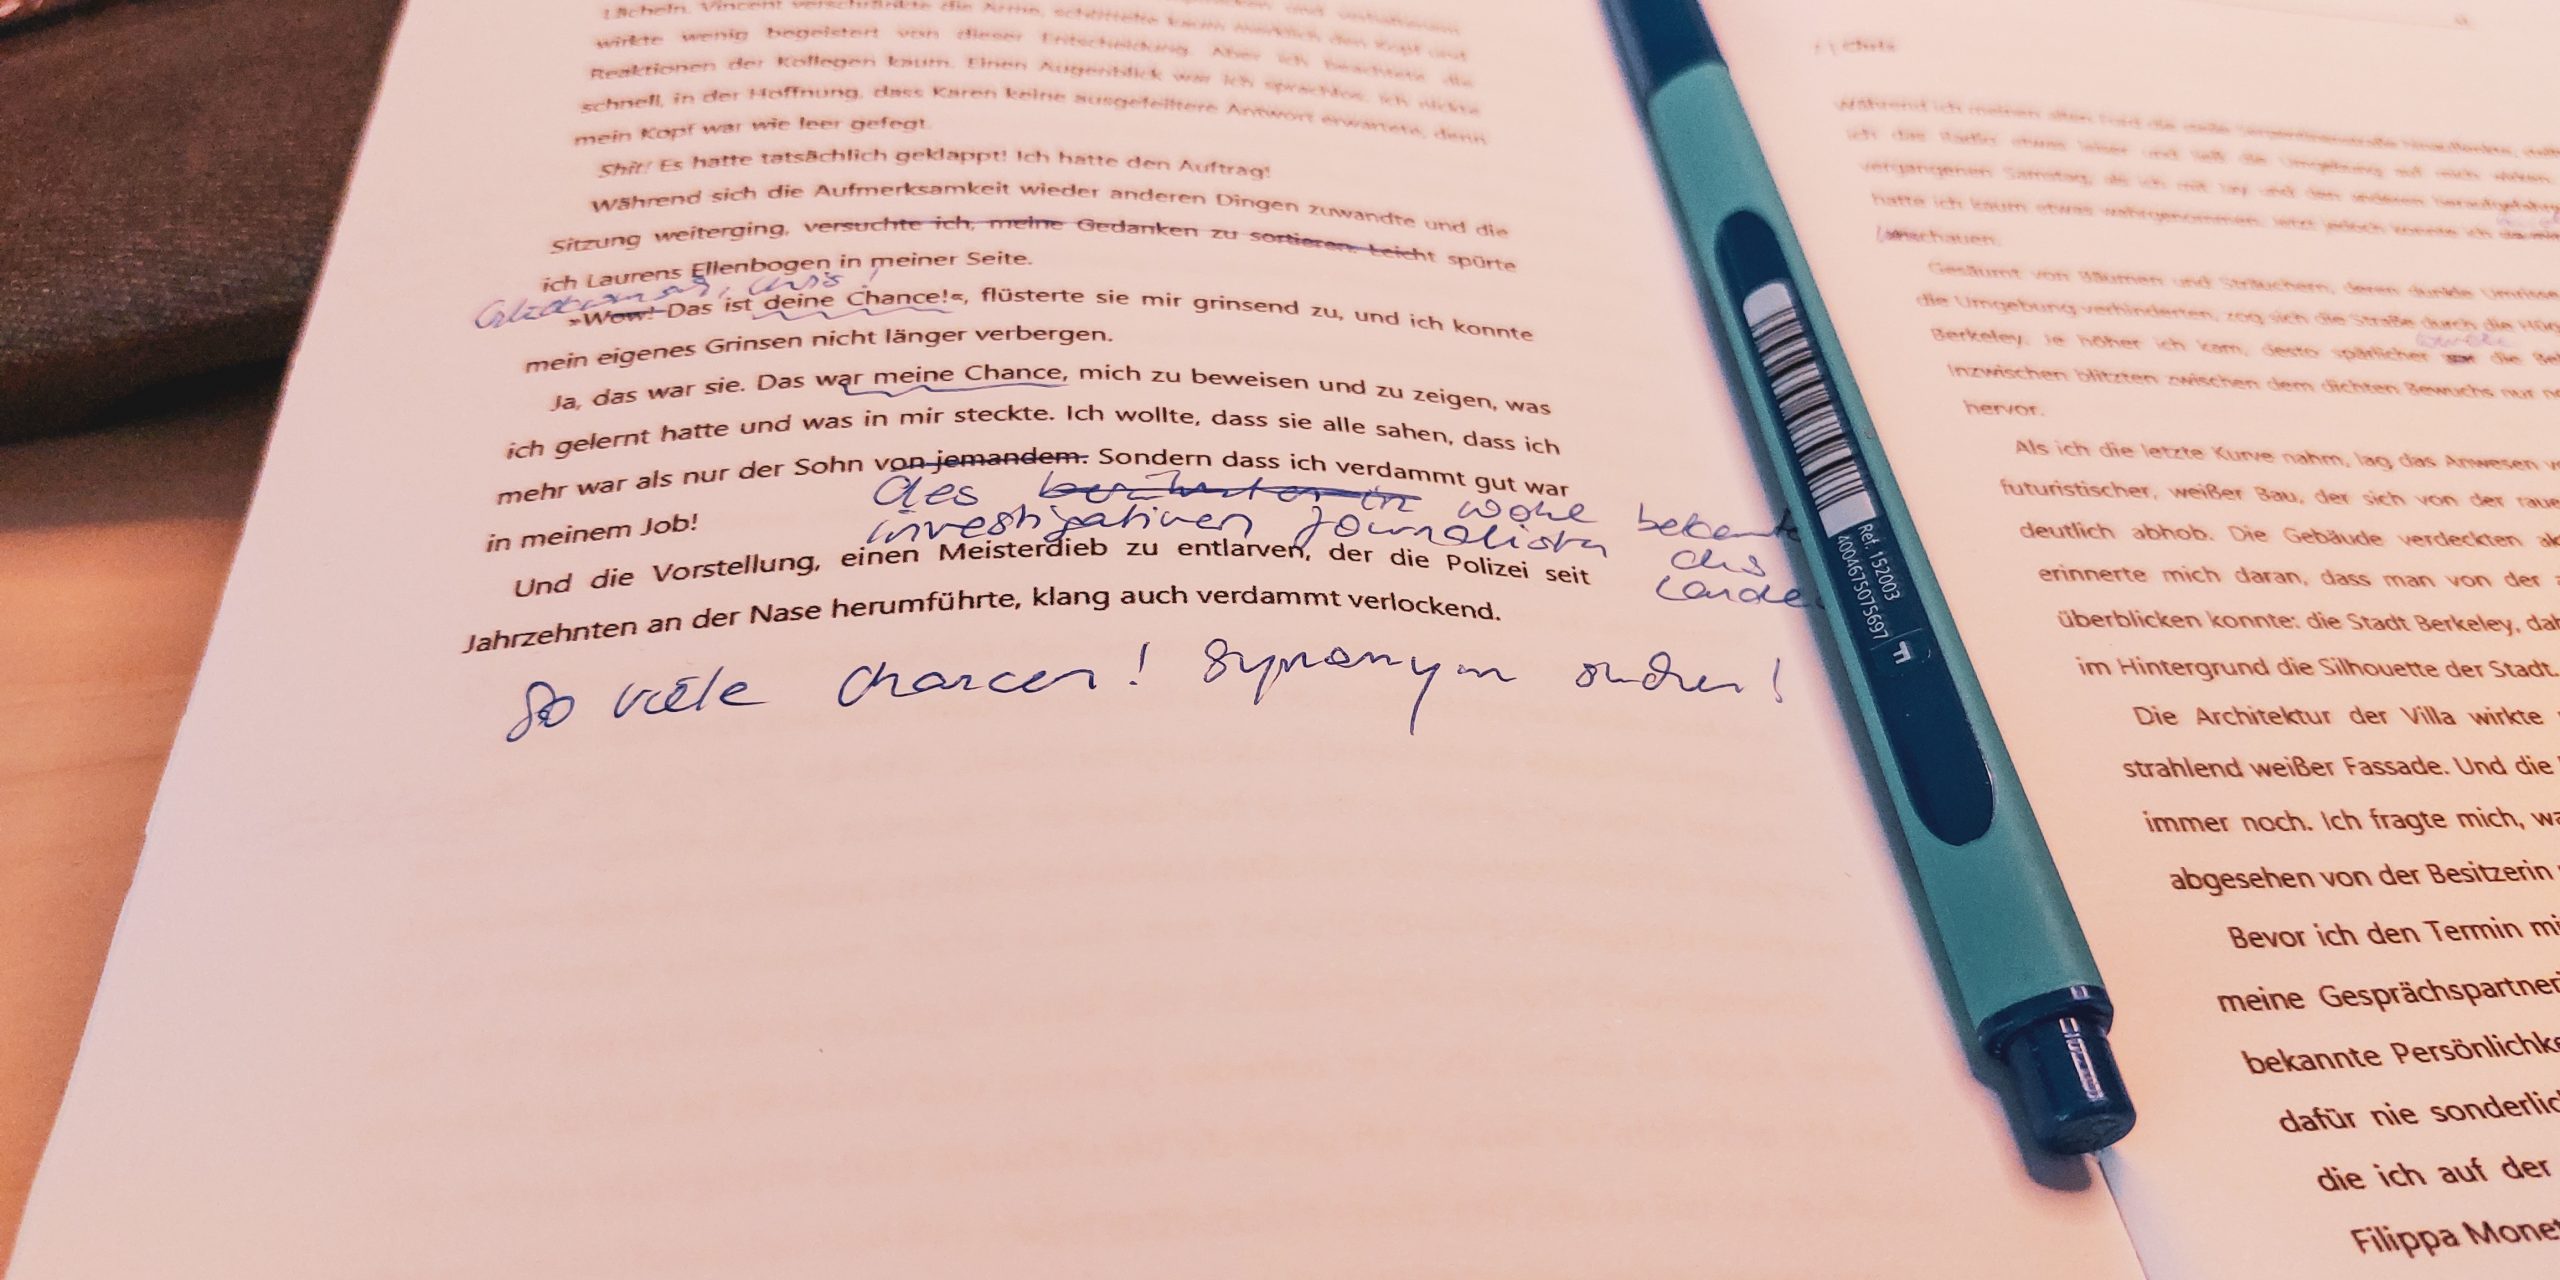 Lächeln. Vincent verschränkte die Arme, schüttelte kaum merklich den Kopf und
wirkte wenig begeistert von dieser Entscheidung. Aber ich beachtete die
Reaktionen der Kollegen kaum. Einen Augenblick war ich sprachlos. Ich nickte
schnell, in der Hoffnung, dass Karen keine ausgefeiltere Antwort erwartete, denn
mein Kopf war wie leer gefegt.
Shit! Es hatte tatsächlich geklappt! Ich hatte den Auftrag!
Während sich die Aufmerksamkeit wieder anderen Dingen zuwandte und die
Sitzung weiterging, versuchte ich, meine Gedanken zu sortieren. Leicht spürte
ich Laurens Ellenbogen in meiner Seite.
»Wow! Das ist deine Chance!«, flüsterte sie mir grinsend zu, und ich konnte
mein eigenes Grinsen nicht länger verbergen.
Ja, das war sie. Das war meine Chance, mich zu beweisen und zu zeigen, was
ich gelernt hatte und was in mir steckte. Ich wollte, dass sie alle sahen, dass ich
mehr war als nur der Sohn von jemandem. Sondern dass ich verdammt gut war
des berühmten wohl bekannte
in meinem Job!
investigativen Journalisten des
Und die Vorstellung, einen Meisterdieb zu entlarven, der die Polizei seit
Lande
Jahrzehnten an der Nase herumführte, klang auch verdammt verlockend.
So viele Chancen! Synonym suchen!
Ref. 152003
4004675075697
Chris
Während ich meinen alten Ford die steile
ich das Radio etwas leiser und ließ die Umgebung auf mich wirken.
vergangenen Samstag, als ich mit Jay und den anderen
hatte ich kaum etwas wahrgenommen. Jetzt jedoch konnte ich
schauen.
Gesäumt von Bäumen und Sträuchern, deren dunkle Umrisse
die Umgebung verhinderten, zog sich die Straße durch die
Berkeley. Je höher ich kam, desto spärlicher war die
Inzwischen blitzten zwischen dem dichten Bewuchs nur
hervor.
Als ich die letzte Kurve nahm, lag das Anwesen
futuristischer, weißer Bau, der sich von der
deutlich abhob. Die Gebäude verdeckten
erinnerte mich daran, dass man von der
überblicken konnte: die Stadt Berkeley,
im Hintergrund die Silhouette der Stadt.
Die Architektur der Villa wirkte
strahlend weißer Fassade. Und die
immer noch. Ich fragte mich,
abgesehen von der Besitzerin
Bevor ich den Termin
meine Gesprächspartner
bekannte Persönlichke
dafür nie sonderlic
die ich auf der
Filippa Monet